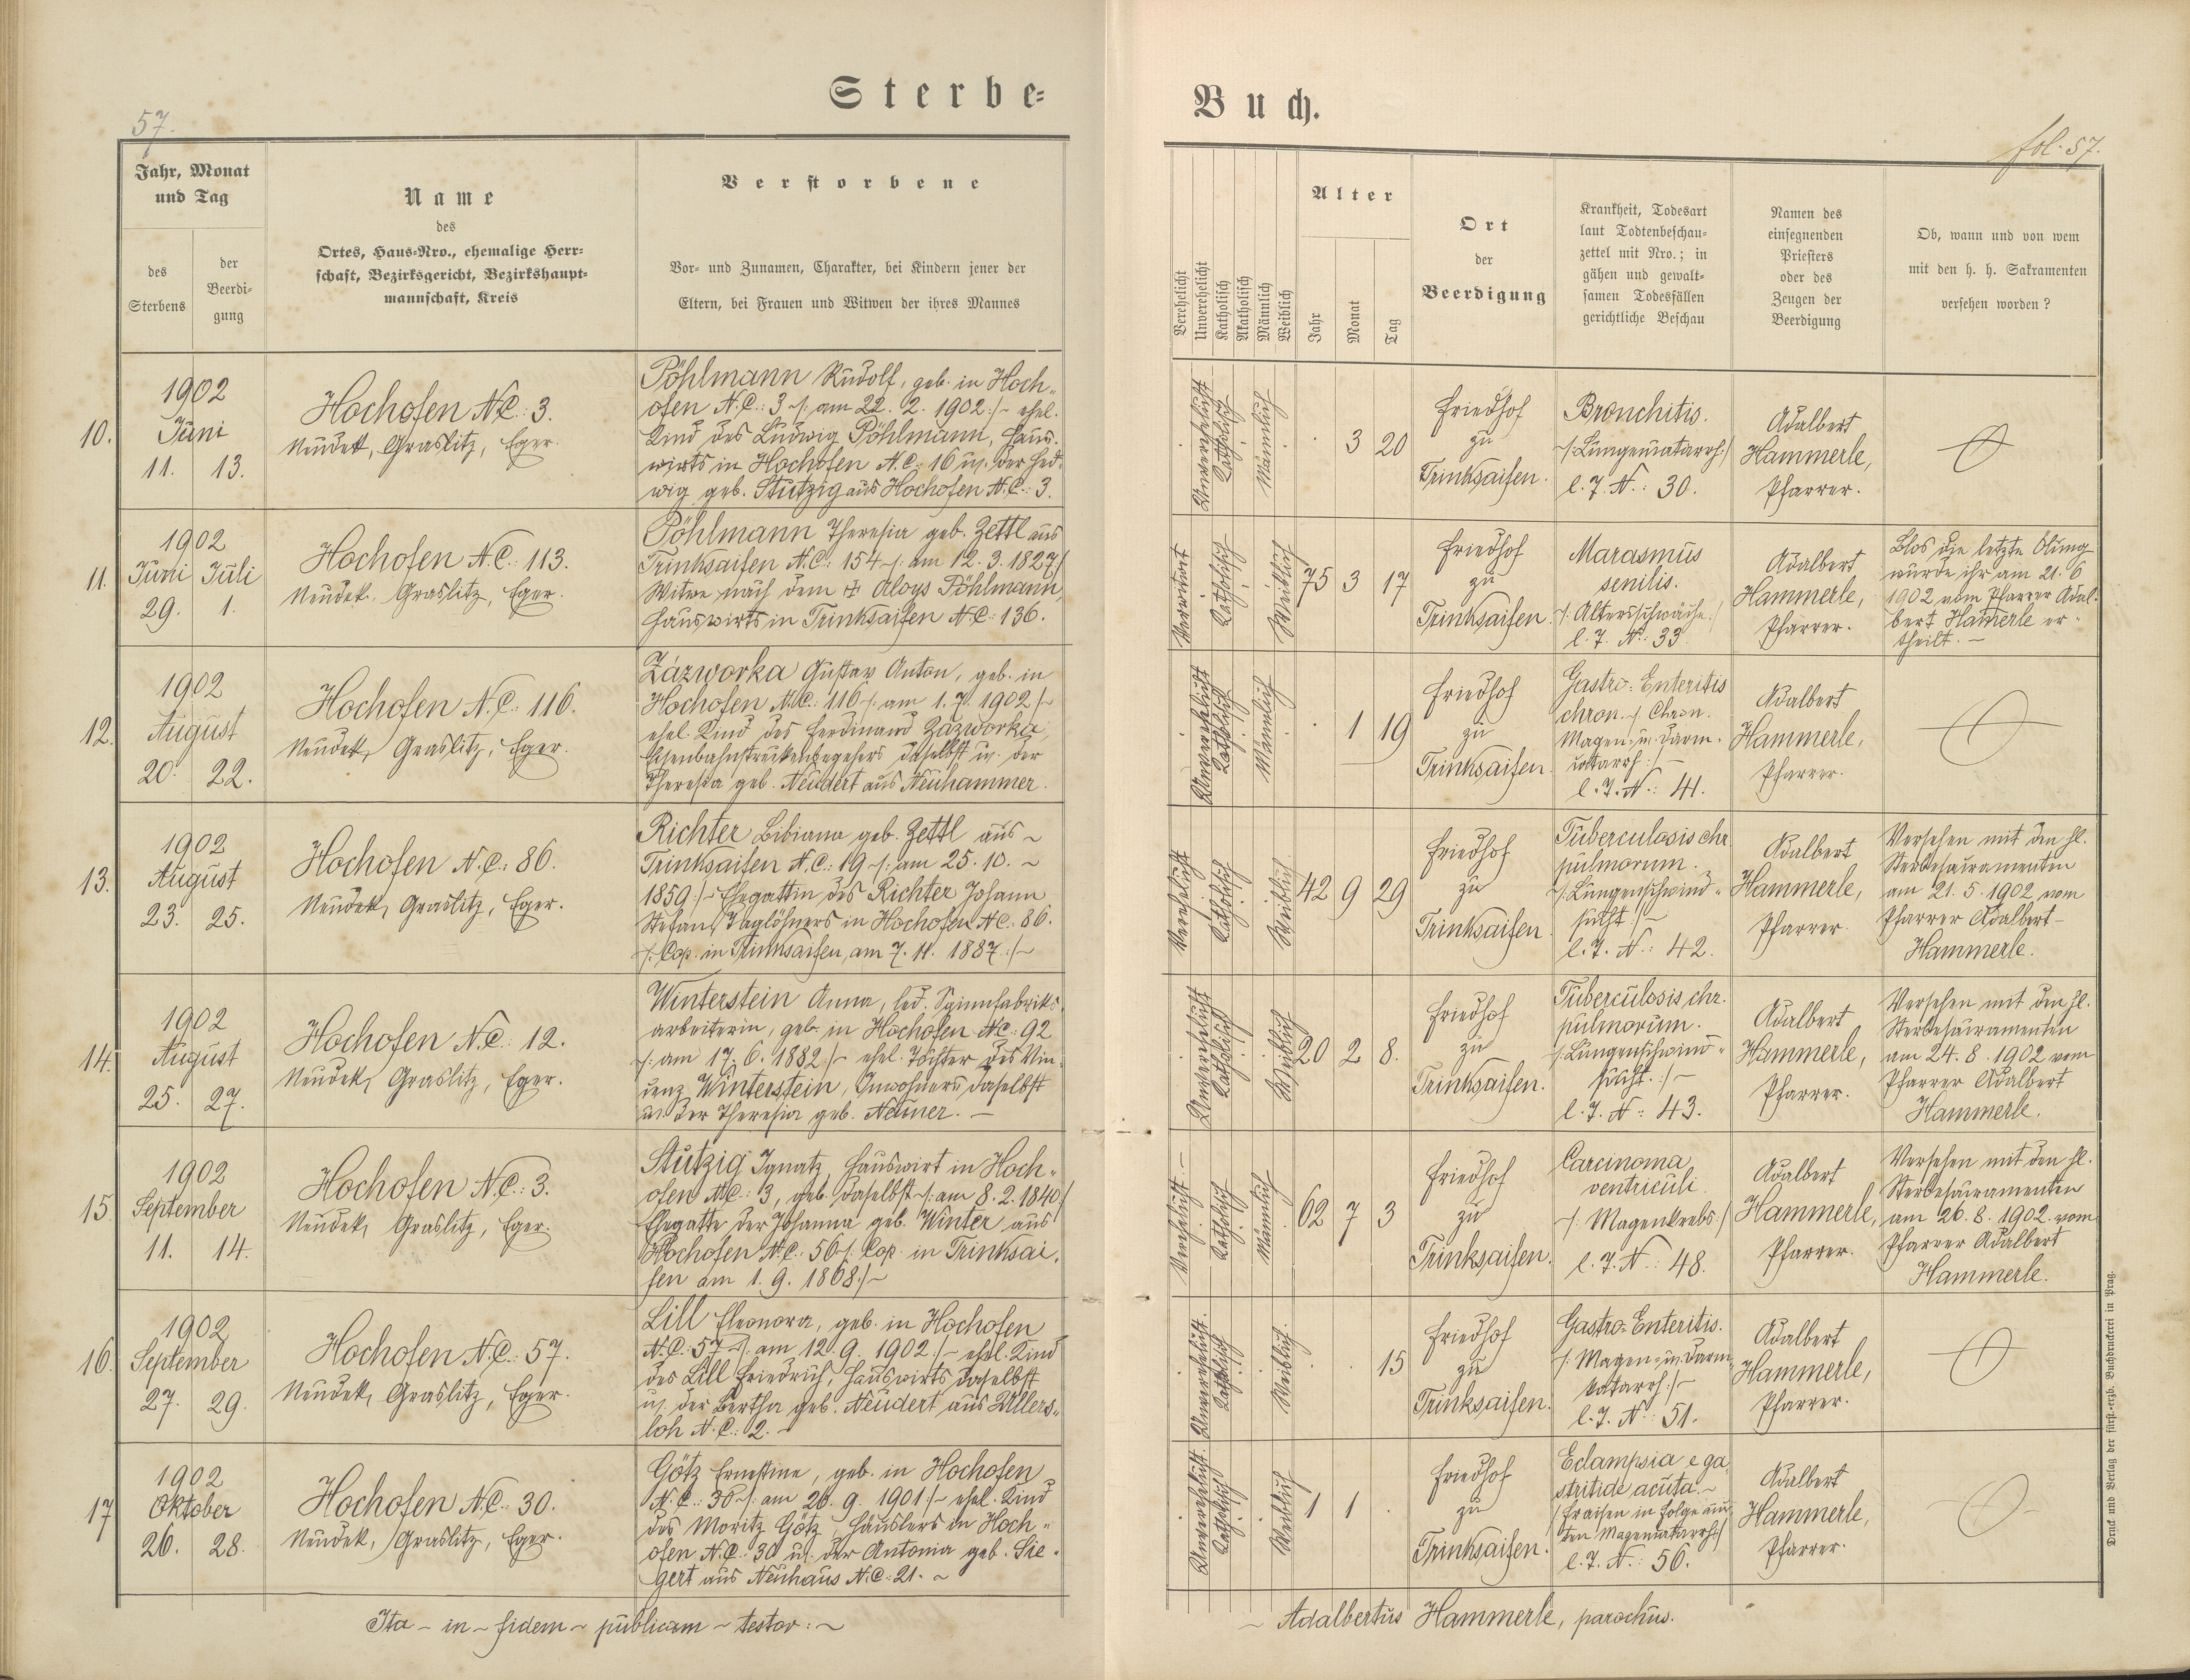 Sterbe=
Buch.
57.
fol. 57.
Jahr, Monat
und Tag
des
Sterbens
der
Beerdi-
gung
Name
des
Ortes, Haus-Nro., ehemalige Herr-
schaft, Bezirksgericht, Bezirkshaupt-
mannschaft, Kreis
Verstorbene
Vor- und Zunamen, Charakter, bei Kindern jener der
Eltern, bei Frauen und Witwen der ihres Mannes
Verehelicht
Unverehelicht
Katholisch
Akatholisch
Männlich
Weiblich
Alter
Jahr
Monat
Tag
Ort
der
Beerdigung
Krankheit, Todesart
laut Todtenbeschau-
zettel mit Nro.; in
gähen und gewalt-
samen Todesfällen
gerichtliche Beschau
Namen des
einsegnenden
Priesters
oder des
Zeugen der
Beerdigung
Ob, wann und von wem
mit den h. h. Sakramenten
versehen worden?
10.
1902
Juni
11. 13.
Hochofen N.C.: 3.
Neudek, Graslitz, Eger.
Pöhlmann Rudolf, geb. in Hoch-
ofen N.C.: 3 /: am 22. 2. 1902 :/ ehel.
Kind des Ludwig Pöhlmann, Haus-
wirts in Hochofen N.C.: 16 u. der Hed-
wig geb. Stützig aus Hochofen N.C.: 3.
Unverehelicht
Katholisch
Männlich
3 20
Friedhof
zu
Trinksaifen.
Bronchitis.
/: Lungencatarrh :/
l. T. N.: 30.
Adalbert
Hammerle,
Pfarrer.
11.
1902
Juni Juli
29. 1.
Hochofen N.C.: 113.
Neudek, Graslitz, Eger.
Pöhlmann Theresia geb. Zettl aus
Trinksaifen N.C.: 154 /: am 12. 3. 1827 :/
Witwe nach dem ✠ Aloys Pöhlmann,
Hauswirts in Trinksaifen N.C.: 136.
Verwitwet
Katholisch
Weiblich
75 3 17
Friedhof
zu
Trinksaifen.
Marasmus
senilis.
/: Altersschwäche :/
l. T. N.: 33
Adalbert
Hammerle,
Pfarrer.
Blos die letzte Ölung
wurde ihr am 21. 6
1902 vom Pfarrer Adal-
bert Hamerle er-
theilt. –
12.
1902
August
20. 22.
Hochofen N.C.: 116.
Neudek, Graslitz, Eger.
Zázworka Gustav Anton, geb. in
Hochofen N.C.: 116 /: am 1. 7. 1902 :/
ehel. Kind des Ferdinand Zázworka,
Eisenbahnstreckenbegehers daselbst u. der
Theresia geb. Neudert aus Neuhammer.
Unverehelicht
Katholisch
Männlich
1 19
Friedhof
zu
Trinksaifen.
Gastro=Enteritis
chron. /: Chron.
Magen- u. Darm-
catarrh :/
l. T. N.: 41.
Adalbert
Hammerle,
Pfarrer.
13.
1902
August
23. 25.
Hochofen N.C.: 86.
Neudek, Graslitz, Eger.
Richter Bibiana geb. Zettl aus
Trinksaifen N.C.: 19 /: am 25. 10.
1859 :/ Ehegattin des Richter Johann
Stefan, Taglöhners in Hochofen N.C.: 86.
/: Cop. in Trinksaifen, am 7. 11. 1887 :/
Verehelicht
Katholisch
Weiblich
42 9 29
Friedhof
zu
Trinksaifen.
Tuberculosis chr.
pulmorum.
/: Lungenschwind-
sucht :/
l. T. N.: 42.
Adalbert
Hammerle,
Pfarrer.
Versehen mit den hl.
Sterbesacramenten
am 21. 5. 1902 vom
Pfarrer Adalbert
Hammerle.
14.
1902
August
25. 27.
Hochofen N.C. 12.
Neudek, Graslitz, Eger.
Winterstein Anna, led. Spinnfabriks-
arbeiterin, geb. in Hochofen N.C.: 92
/: am 17. 6. 1882 :/ ehel. Tochter des Vin-
cenz Winterstein, Inwohners daselbst
u. der Theresia geb. Neuner. –
Unverehelicht
Katholisch
Weiblich
20 2 8.
Friedhof
zu
Trinksaifen.
Tuberculosis chr.
pulmorum.
/: Lungenschwind-
sucht. :/
l. T. N.: 43.
Adalbert
Hammerle,
Pfarrer.
Versehen mit den hl.
Sterbesacramenten
am 24. 8. 1902 vom
Pfarrer Adalbert
Hammerle.
15.
1902
September
11. 14.
Hochofen N.C.: 3.
Neudek, Graslitz, Eger.
Stützig Ignatz, Hauswirt in Hoch-
ofen N.C.: 3, geb. daselbst /: am 8. 2. 1840 :/
Ehegatte der Johanna geb. Winter aus
Hochofen N.C.: 56 /: Cop. in Trinksai-
fen am 1. 9. 1868 :/
Verehelicht. –
Katholisch
Männlich
62 7 3
Friedhof
zu
Trinksaifen.
Carcinoma
ventriculi
/: Magenkrebs :/
l. T. N.: 48.
Adalbert
Hammerle,
Pfarrer.
Versehen mit den hl.
Sterbesacramenten
am 26. 8. 1902 vom
Pfarrer Adalbert
Hammerle.
16.
1902
September
27. 29.
Hochofen N.C.: 57.
Neudek, Graslitz, Eger.
Lill Eleonora, geb. in Hochofen
N.C. 57 /: am 12. 9. 1902 :/ ehel. Kind
des Lill Friedrich, Hauswirts daselbst
u. der Bertha geb. Neudert aus Ullers-
loh N.C.: 2. –
Unverehelicht.
Katholisch
Weiblich.
15
Friedhof
zu
Trinksaifen.
Gastro=Enteritis.
/: Magen- u. Darm-
katarrh :/
l. T. N.: 51.
Adalbert
Hammerle,
Pfarrer.
17
1902
Oktober
26. 28.
Hochofen N.C.: 30.
Neudek, Graslitz, Eger.
Götz Ernestine, geb. in Hochofen
N.C.: 30 /: am 26. 9. 1901 :/ ehel. Kind
des Moritz Götz, Häuslers in Hoch-
ofen N.C.: 30 u. der Antonia geb. Sie-
gert aus Neuhaus N.C.: 21.
Unverehelicht.
Katholisch
Weiblich
1 1
Friedhof
zu
Trinksaifen.
Eclampsia e ga-
stritide acuta.
/: Fraisen in Folge acu-
ten Magencatarrhs :/
l. T. N.: 56.
Adalbert
Hammerle,
Pfarrer.
Ita – in – fidem – publicam – testor: –
– Adalbertus Hammerle, parochus.
Druck und Verlag der fürst.-erzb. Buchdruckerei in Prag.